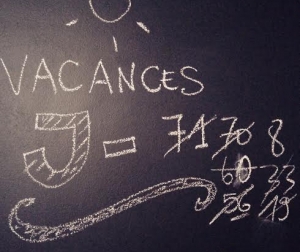 VACANCES
J- 75 70 8
60 33
26 19